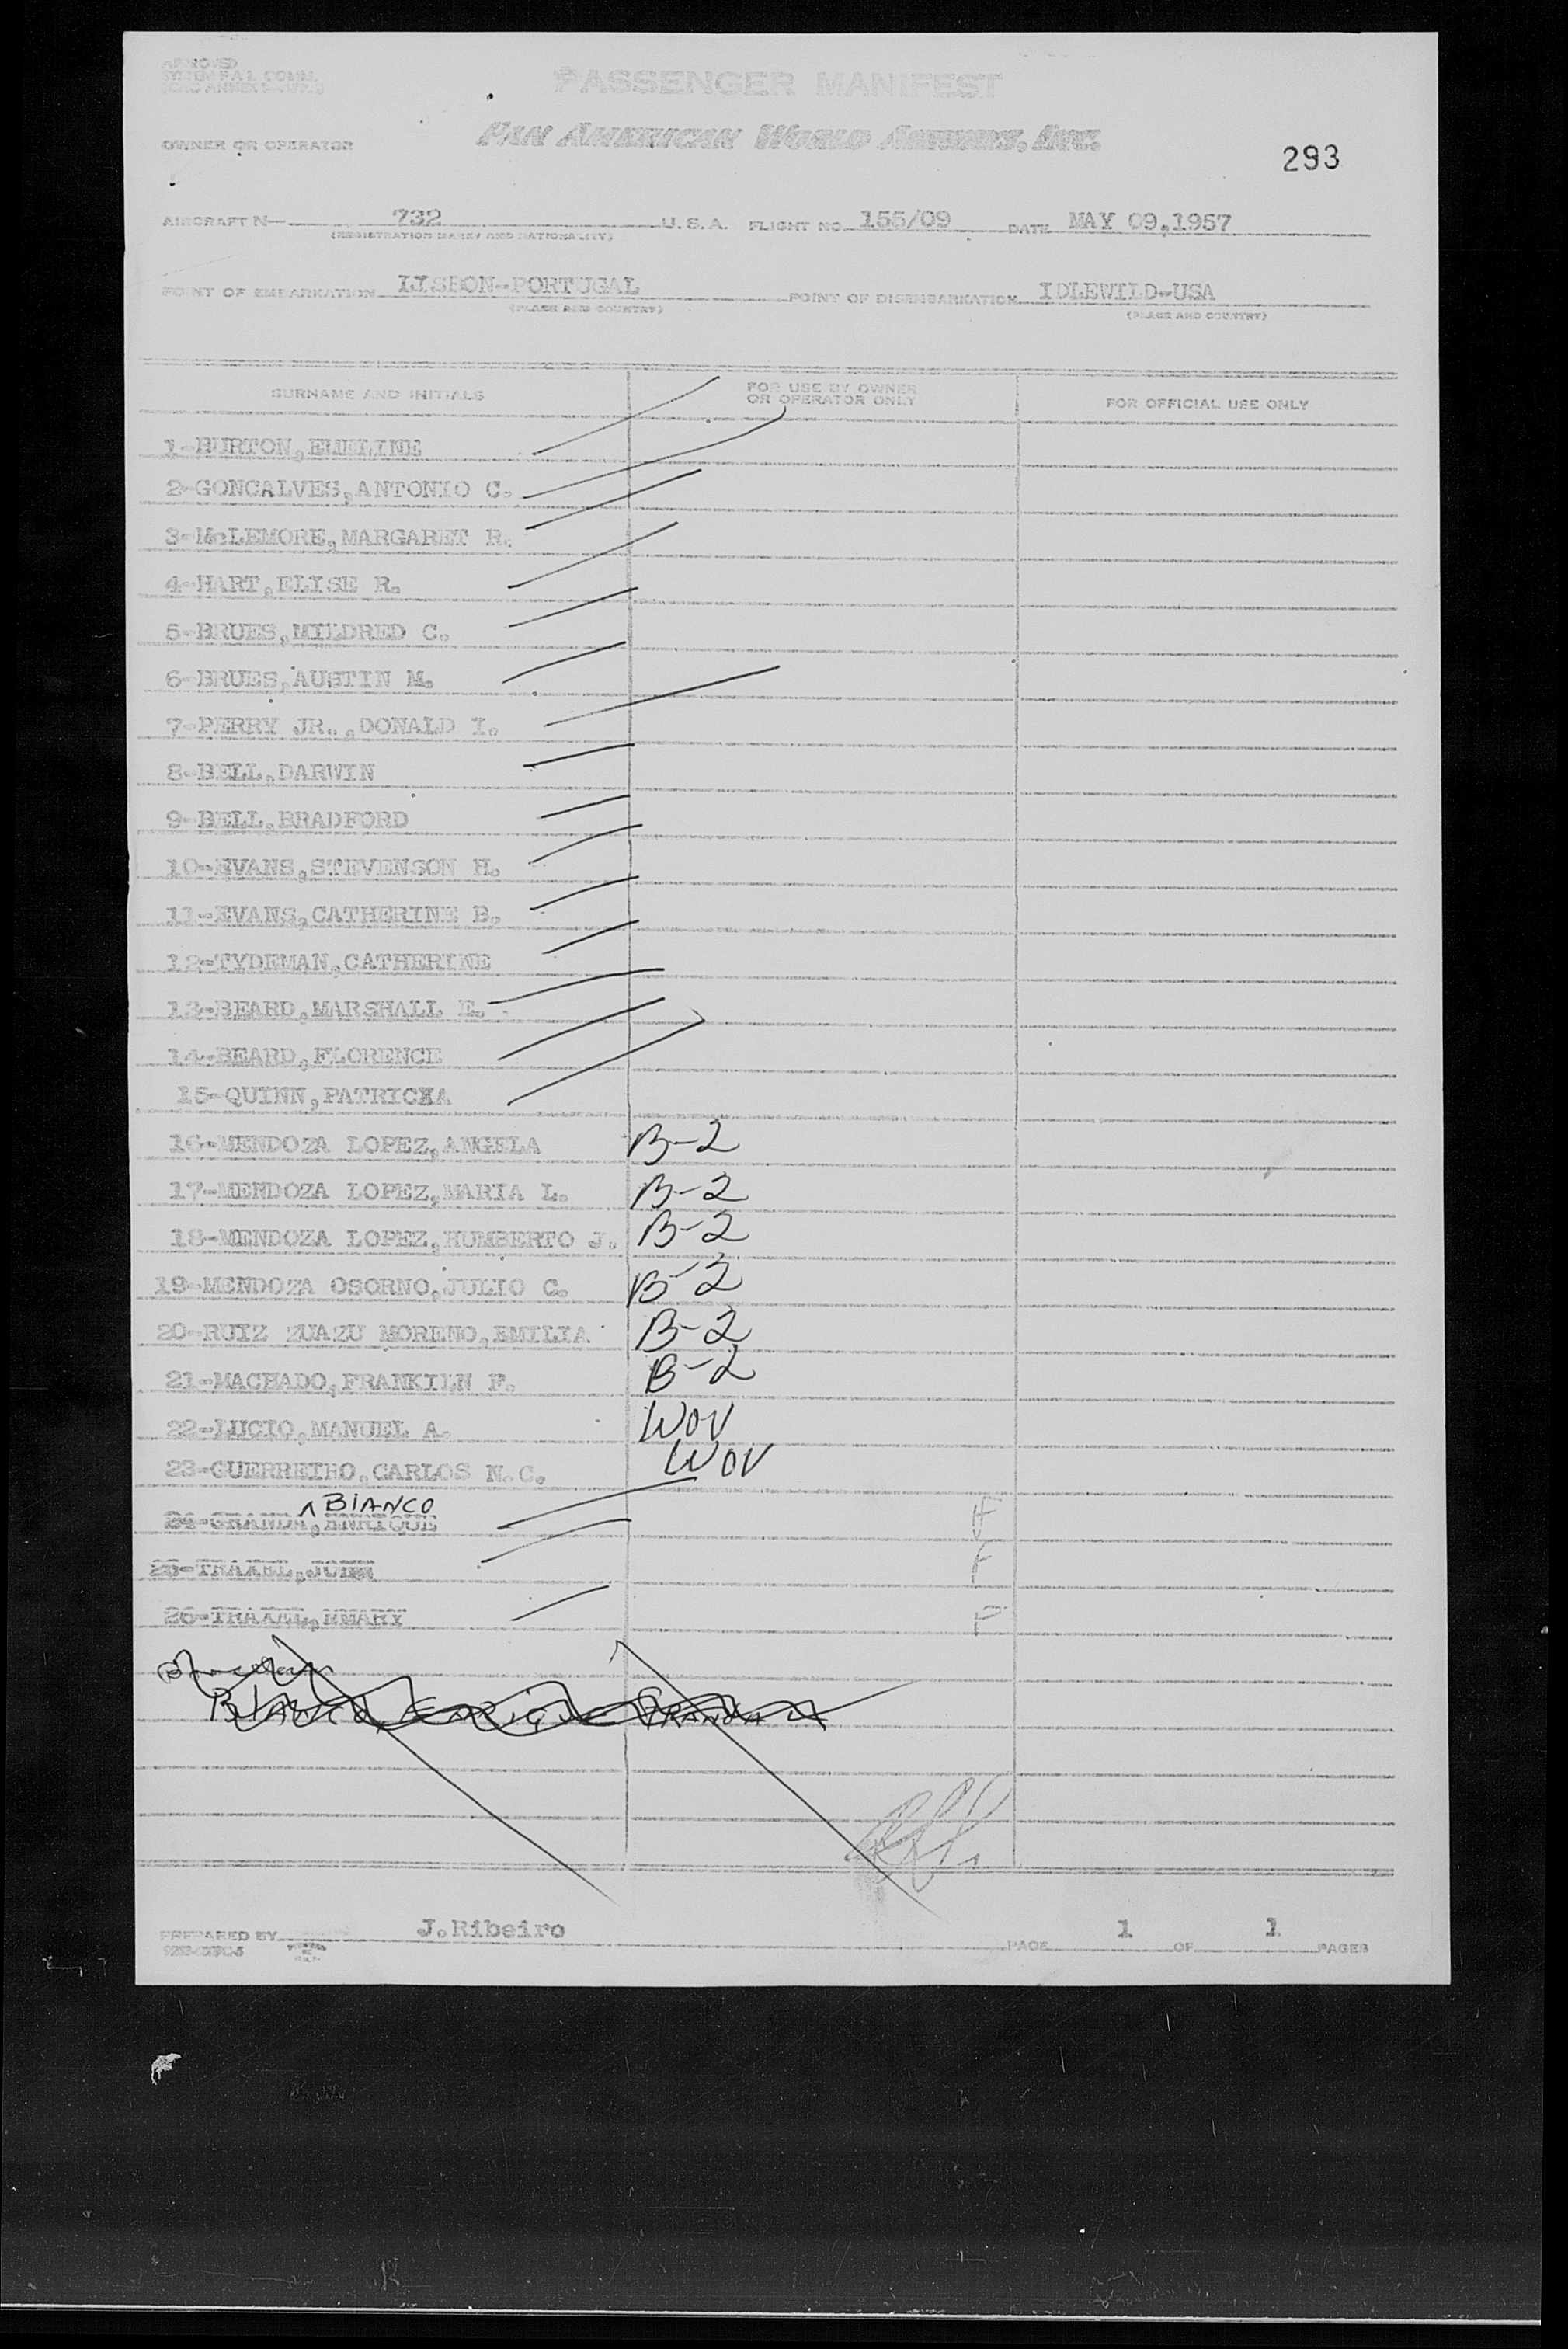 APPROVED
PASSENGER MANIFEST
OWNER OR OPERATOR
PAN AMERICAN WORLD AIRWAYS, INC.
293
AIRCRAFT N— 732 U.S.A. FLIGHT NO. 155/09 DATE MAY 09,1957
(REGISTRATION MARKS AND NATIONALITY)
POINT OF EMBARKATION LISBON--PORTUGAL POINT OF DISEMBARKATION IDLEWILD-USA
(PLACE AND COUNTRY) (PLACE AND COUNTRY)
SURNAME AND INITIALS FOR USE BY OWNER OR OPERATOR ONLY FOR OFFICIAL USE ONLY
1-BURTON,EMELINE
2-GONCALVES,ANTONIO C.
3-McLEMORE,MARGARET R.
4-HART,ELISE R.
5-BRUES,MILDRED C.
6-BRUES,AUSTIN M.
7-PERRY JR.,DONALD I.
8-BELL,DARWIN
9-BELL,BRADFORD
10-EVANS,STEVENSON H.
11-EVANS,CATHERINE B.
12-TYDEMAN,CATHERINE
13-BEARD,MARSHALL E.
14-BEARD,FLORENCE
15-QUINN,PATRICIA
16-MENDOZA LOPEZ,ANGELA B-2
17-MENDOZA LOPEZ,MARIA L. B-2
18-MENDOZA LOPEZ,HUMBERTO J. B-2
19-MENDOZA OSORNO,JULIO C. B-2
20-RUIZ ZUAZU MORENO,EMILIA B-2
21-MACHADO,FRANKILN F. B-2
22-LUCIO,MANUEL A. WOV
23-GUERREIRO,CARLOS N.C. WOV
^ BIANCO
24-GRANDA,ENRIQUE F
25-TRAXEL,JOHN F
26-TRAXEL,EMARY F
PREPARED BY J.Ribeiro PAGE 1 OF 1 PAGES